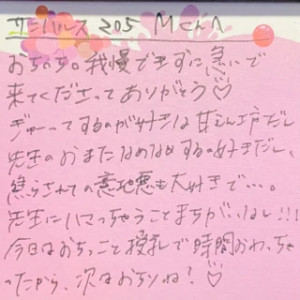 サンパレス 205 Mさんへ
おちゃち。我慢できずに急いで
来てくださってありがとう♡
ぎゅーってするのが好きな甘えん坊だし
先生のおまたなめなめするの好きだし、
焦らされての意地悪も大好きで…。
先生にハマっちゃうことまちがいなし!!!
今日はおちっこと授乳で時間おわっちゃ
ったから、次はおちりね!♡